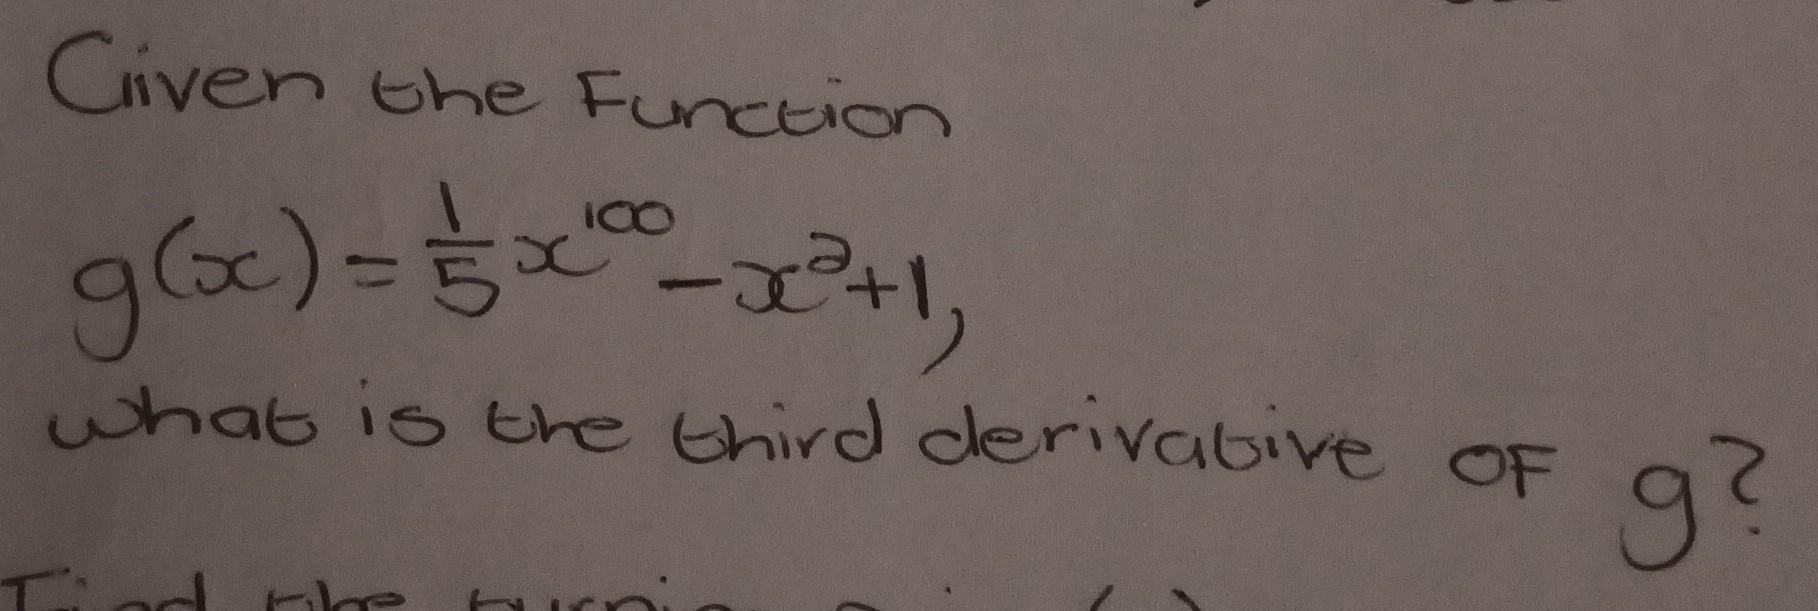 Given the Function
g(x) = 1/5 x^100 - x^2 + 1,
what is the third derivative OF g?
Find the